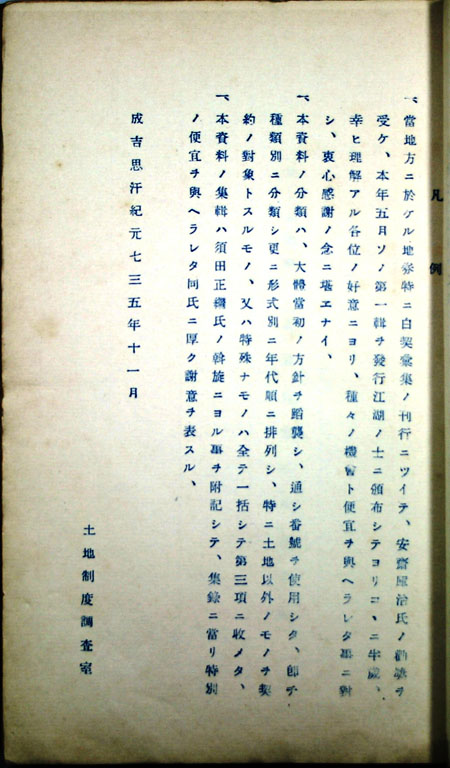 凡例
一、當地方ニ於ケル地券特ニ白契彙集ノ刊行ニツイテ、安齋庫治氏ノ勸誘ヲ
受ケ、本年五月ソノ第一輯ヲ發行江湖ノ士ニ頒布シテヨリコヽニ半歲、
幸ヒ理解アル各位ノ好意ニヨリ、種々ノ機會ト便宜ヲ與ヘラレタ事ニ對
シ、衷心感謝ノ念ニ堪エナイ、
一、本資料ノ分類ハ、大體當初ノ方針ヲ蹈襲シ、通シ番號ヲ使用シタ、卽チ
種類別ニ分類シ更ニ形式別ニ年代順ニ排列シ、特ニ土地以外ノモノヲ契
約ノ對象トスルモノ、又ハ特殊ナモノハ全テ一括シテ第三項ニ收メタ、
一、本資料ノ集輯ハ須田正繼氏ノ斡旋ニヨル事ヲ附記シテ、集錄ニ當リ特別
ノ便宜ヲ與ヘラレタ同氏ニ厚ク謝意ヲ表スル、
成吉思汗紀元七三五年十一月
土地制度調査室